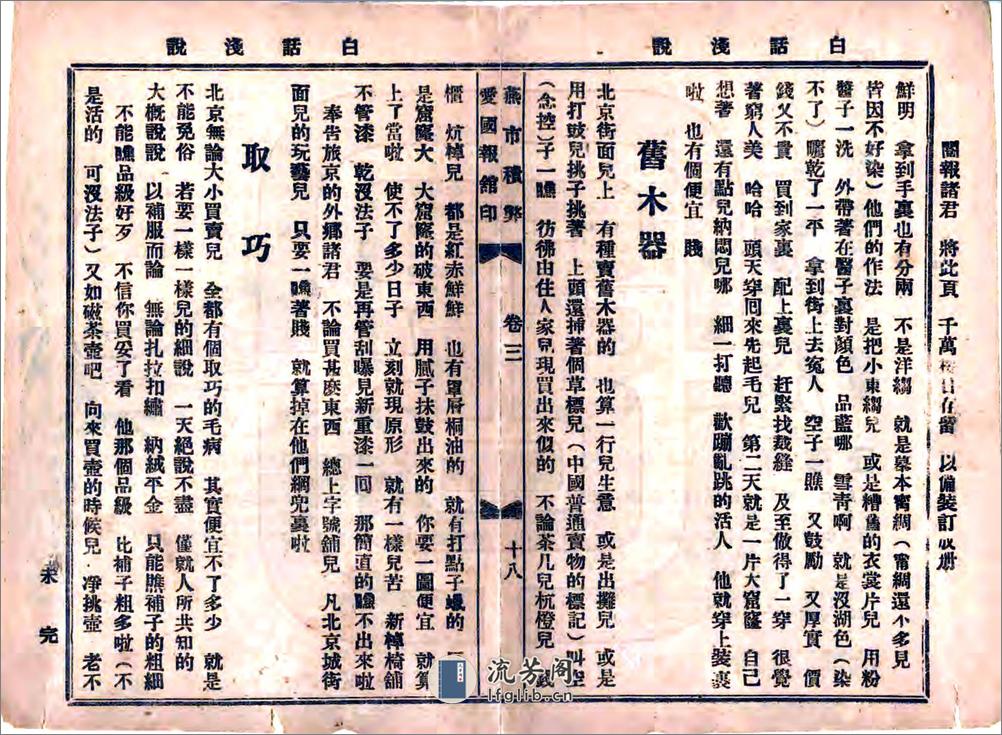 白話淺說
閱報諸君　將此頁　千萬
存留　以備裝訂成册
鮮明　拿到手裏也有分兩　不是洋縐　就是摹本寗綢（寗綢還不多見
皆因不好染）他們的作法　是把小東縐兒　或是糟舊的衣裳片兒　用粉
醬子一洗　外帶著在醬子裏對顏色　品藍哪　雪青啊　就是沒湖色（染
不了）曬乾了一平　拿到街上去寃人　空子一瞧　又鼓勵　又厚實　價
錢又不貴　買到家裏　配上裏兒　趕緊找裁縫　及至做得了一穿　很覺
著窮人美　哈哈　頭天穿囘來先起毛兒　第二天就是一片大窟窿　自己
想著　還有點兒納悶兒哪　細一打聽　歡蹦亂跳的活人　他就穿上裝裹
啦　也有個便宜　賤
舊木器
北京街面兒上　有種賣舊木器的　也算一行兒生意　或是出攤兒　或是
用打鼓兒挑子挑著　上頭還揷著個草標兒（中國普通賣物的標記）叫空
（念控）子一瞧　彷彿由住人家兒現買出來似的　不論茶几兒杌櫈兒
燕市積弊　卷三　十八
愛國報館印
白話淺說
櫃　炕棹兒　都是紅赤鮮鮮　也有罩層桐油的　就有打點子蠟的
是窟窿大　大窟窿的破東西　用膩子抹鼓出來的　你要一圖便宜　就算
上了當啦　使不了多少日子　立刻就現原形　就有一樣兒苦　新棹椅舖
不管漆　乾沒法子　要是再管刮曝見新重漆一囘　那簡直的瞧不出來啦
奉吿旅京的外鄉諸君　不論買甚麽東西　總上字號舖兒　凡北京城街
面兒的玩藝兒　只要一瞧著賤　就算掉在他們網兜裏啦
取巧
北京無論大小買賣兒　全都有個取巧的毛病　其實便宜不了多少　就是
不能免俗　若要一樣一樣兒的細說　一天絕說不盡　僅就人所共知的
大槪說說　以補服而論　無論扎拉扣繡　納絨平金　只能瞧補子的粗細
不能瞧品級好歹　不信你買妥了看　他那個品級　比補子粗多啦（不
是活的　可沒法子）又如破茶壺吧　向來買壺的時候兒　淨挑壺　老不
未完
流芳閣
lfglib.cn